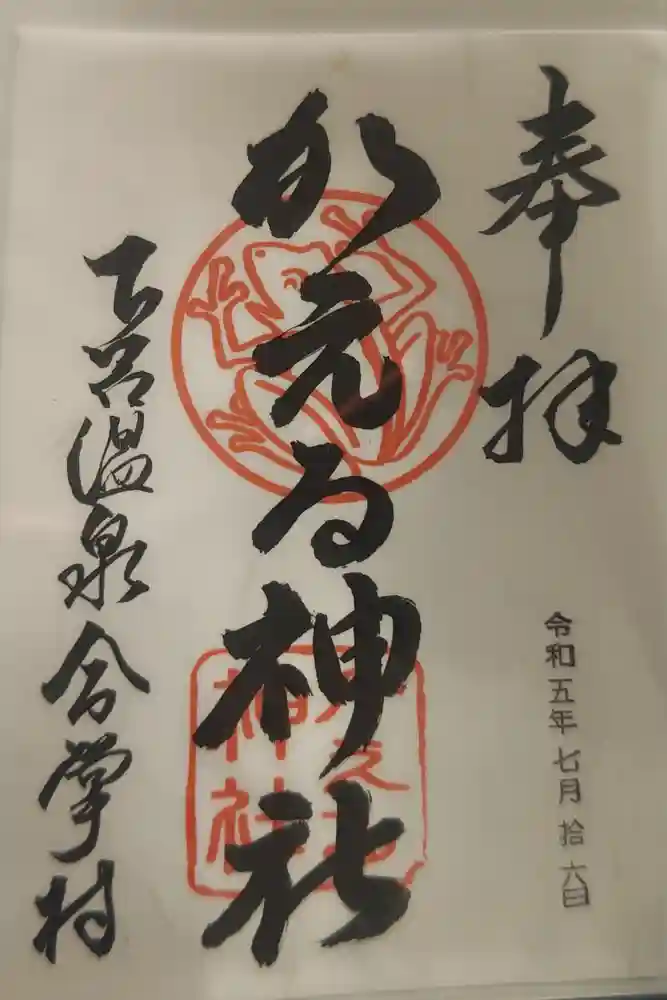 奉拝
令和五年七月拾六日
かえる神社
かえる
神社
下呂温泉合掌村